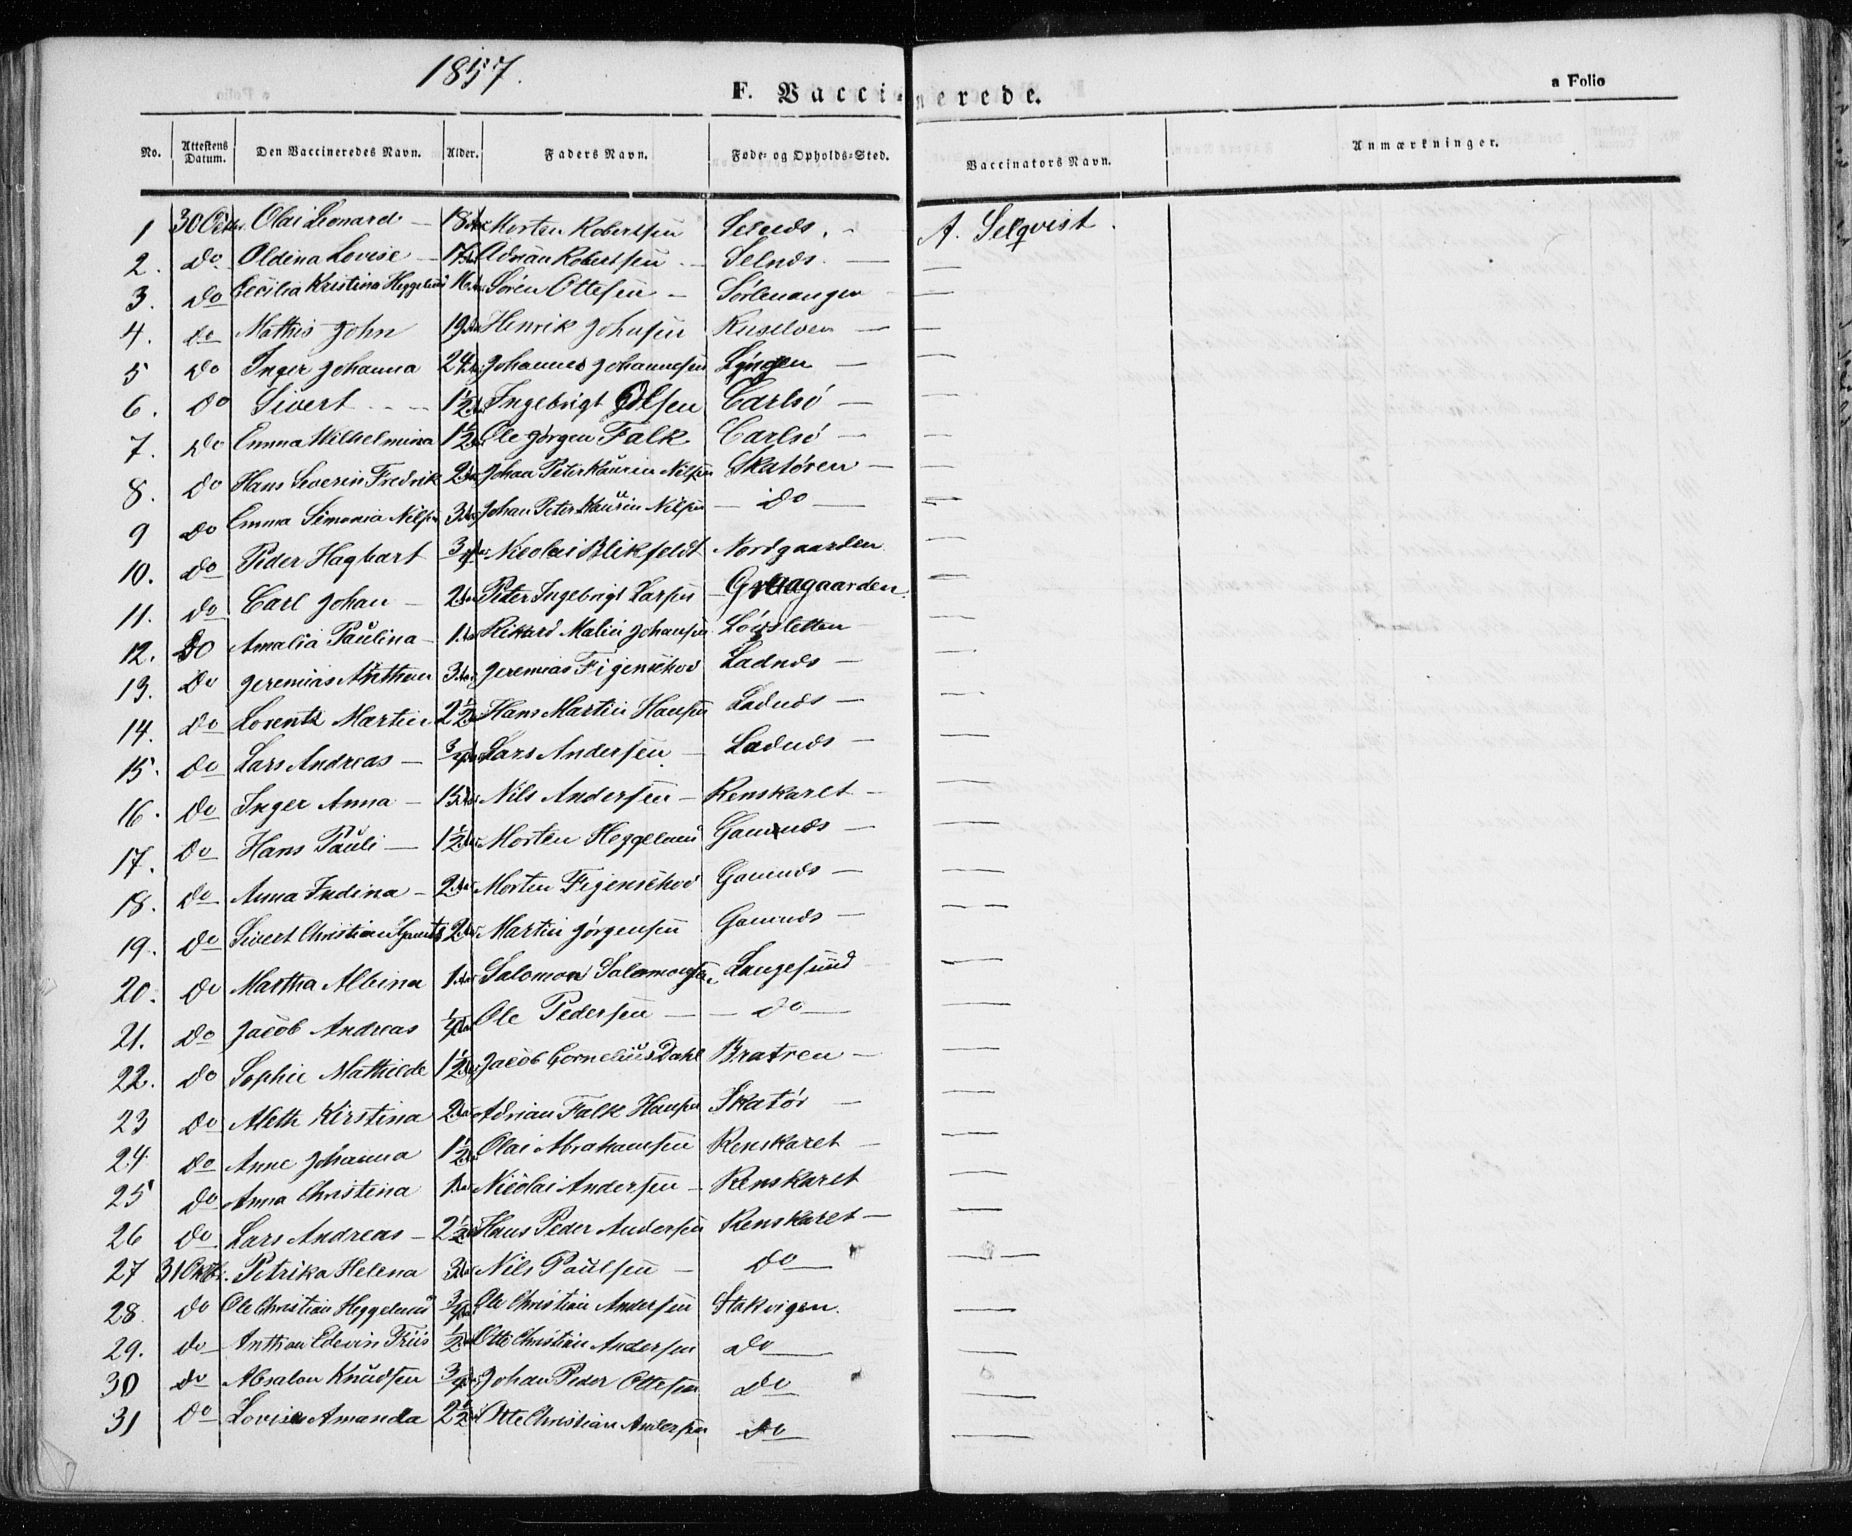 1857.
F. Vaccinerede.
a Folio
No. Attestens Datum. Den Vaccineredes Navn. Alder. Faders Navn. Føde- og Opholds-Sted. Vaccinators Navn. Anmærkninger.
1 30 Octbr. Olai Leonard — 18 Morten Robertsen Selnds. - A. Selqvist.
2. Do Oldina Lovise — Adrian Robertsen — Selnds. — —
3. Do Cecilia Kristina Heggelund 16 Søren Ottesen — Sørlenangen —
4. do Mathis John 19 Henrik Johnsen — —
5 Do Inger Johanna 24 Johannes Johannesen Lyngen — —
6. Do Sivert - - - 1½ Ingebrigt Olsen Carlsö — —
7. Do Emma Wilhelmina 1½ Ole Jørgen Falk Carlsö — —
8. Do Hans Severin Fredrik 2 Johan Peter Kaurin Nilsen Skatören — —
9 Do Emma Simonia Nilsen 3 Johan Peter Kaurin Nilsen — Do — —
10. Do Peder Hagbart 3/4 Nicolai Blikfeldt Nordgaarden —
11. Do Carl Johan — 2 Peter Ingebrigt Larsen — —
12. Do Amalia Paulina — 1 Rikard Malin Johansen Lövsletten —
13. Do Jeremias Anthon 3 Jeremias Figenschou Ladnds — —
14. Do Lorents Martin 2½ Hans Martin Hansen Ladnds — —
15. Do Lars Andreas — 3/4 Lars Andersen — Ladnds — —
16. Do Inger Anna — 15 Nils Andersen — Renskaret — —
17. Do Hans Pauli — 1½ Morten Heggelund Gamnds — —
18. Do Anna Indina — 2 Morten Figenschou Gamnds — —
19. Do Sivert Christian 2 Martin Jørgensen Gamnds — —
20. Do Martha Albina 1 Salomon Salomonsen Langesund —
21. Do Jacob Andreas ¼ Ole Pedersen — — Do — —
22. Do Sophie Mathilde 1½ Jacob Cornelius Dahl Bratren — —
23 Do Aleth Kirstina 2 Adrian Falk Hansen Skatör — —
24 Do Anne Johanna 1½ Olai Abrahamsen Renskaret — —
25 Do Anna Christina 1 Nicolai Andersen — Renskaret —
26 Do. Lars Andreas — 2½ Hans Peder Andersen Renskaret — —
27 31 Oktb. Petrika Helena 3 Nils Paulsen — Do — —
28. Do Ole Christian Heggelund 3/4 Ole Christian Andersen Stakvigen. —
29. do Anthon Edevin Friis ½ Otte Christian Andersen Do —
30 do Absalon Knudsen 3/4 Johan Peder Ottesen Do —
31 Do Lovise Amanda 2½ Otte Christian Andersen Do —